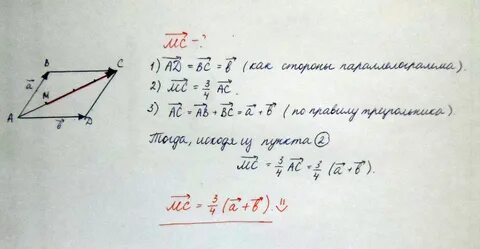 MC - ?
B C
a
M
A b D
1) AD = BC = b (как стороны параллелограмма).
2) MC = 3/4 AC.
3) AC = AB + BC = a + b (по правилу треугольника).
Тогда, исходя из пункта ②
MC = 3/4 AC = 3/4 (a + b).
MC = 3/4 (a + b).